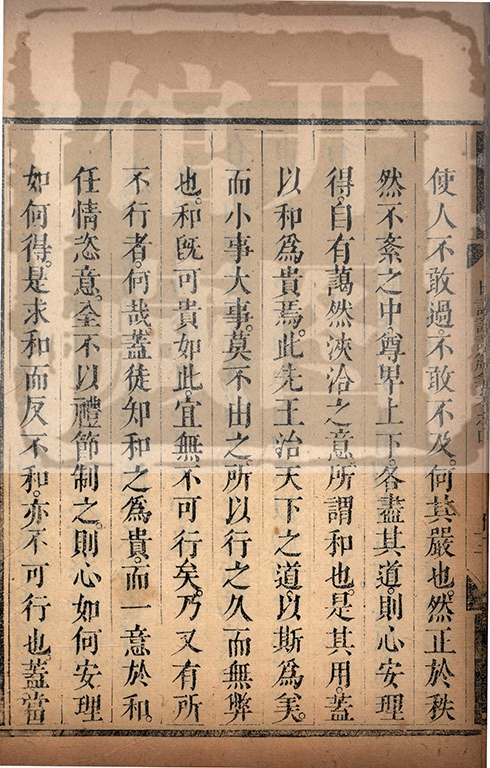 使人不敢過。不敢不及。何其嚴也。然正於秩
然不紊之中。尊卑上下。各盡其道。則心安理
得。自有藹然浹洽之意。所謂和也。是其用。蓋
以和爲貴焉。此先王治天下之道。以斯爲美。
而小事大事。莫不由之。所以行之久而無弊
也。和旣可貴如此。宜無不可行矣。乃又有所
不行者。何哉。蓋徒知和之爲貴。而一意於和。
任情恣意。全不以禮節制之。則心如何安。理
如何得。是求和而反不和。亦不可行也。蓋當